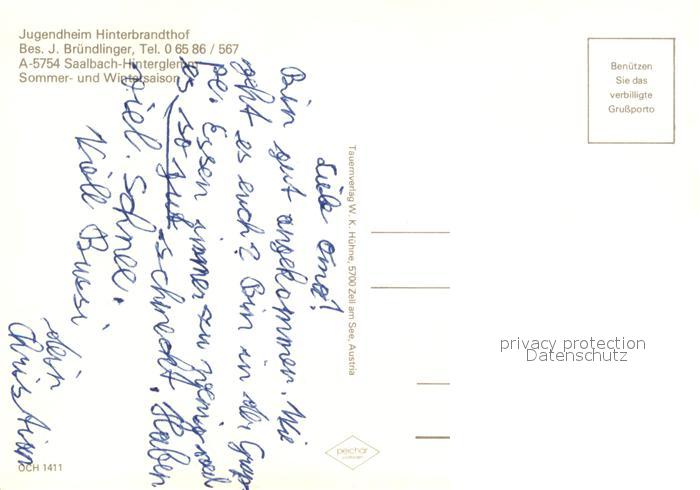 Jugendheim Hinterbrandthof
Bes. J. Bründlinger, Tel. 0 65 86 / 567
A-5754 Saalbach-Hinterglemm
Sommer- und Wintersaison
Benützen
Sie das
verbilligte
Grußporto
Liebe Oma!
Bin gut angekommen. Wie
geht es euch? Bin in der Grup
pe. Essen immer zu wenig weil
es so gut schmeckt. Haben
viel Schnee.
Viele Bussi
dein
Christian
Tauernverlag W. K. Hühne, 5700 Zell am See, Austria
privacy protection
Datenschutz
peichar
OCH 1411